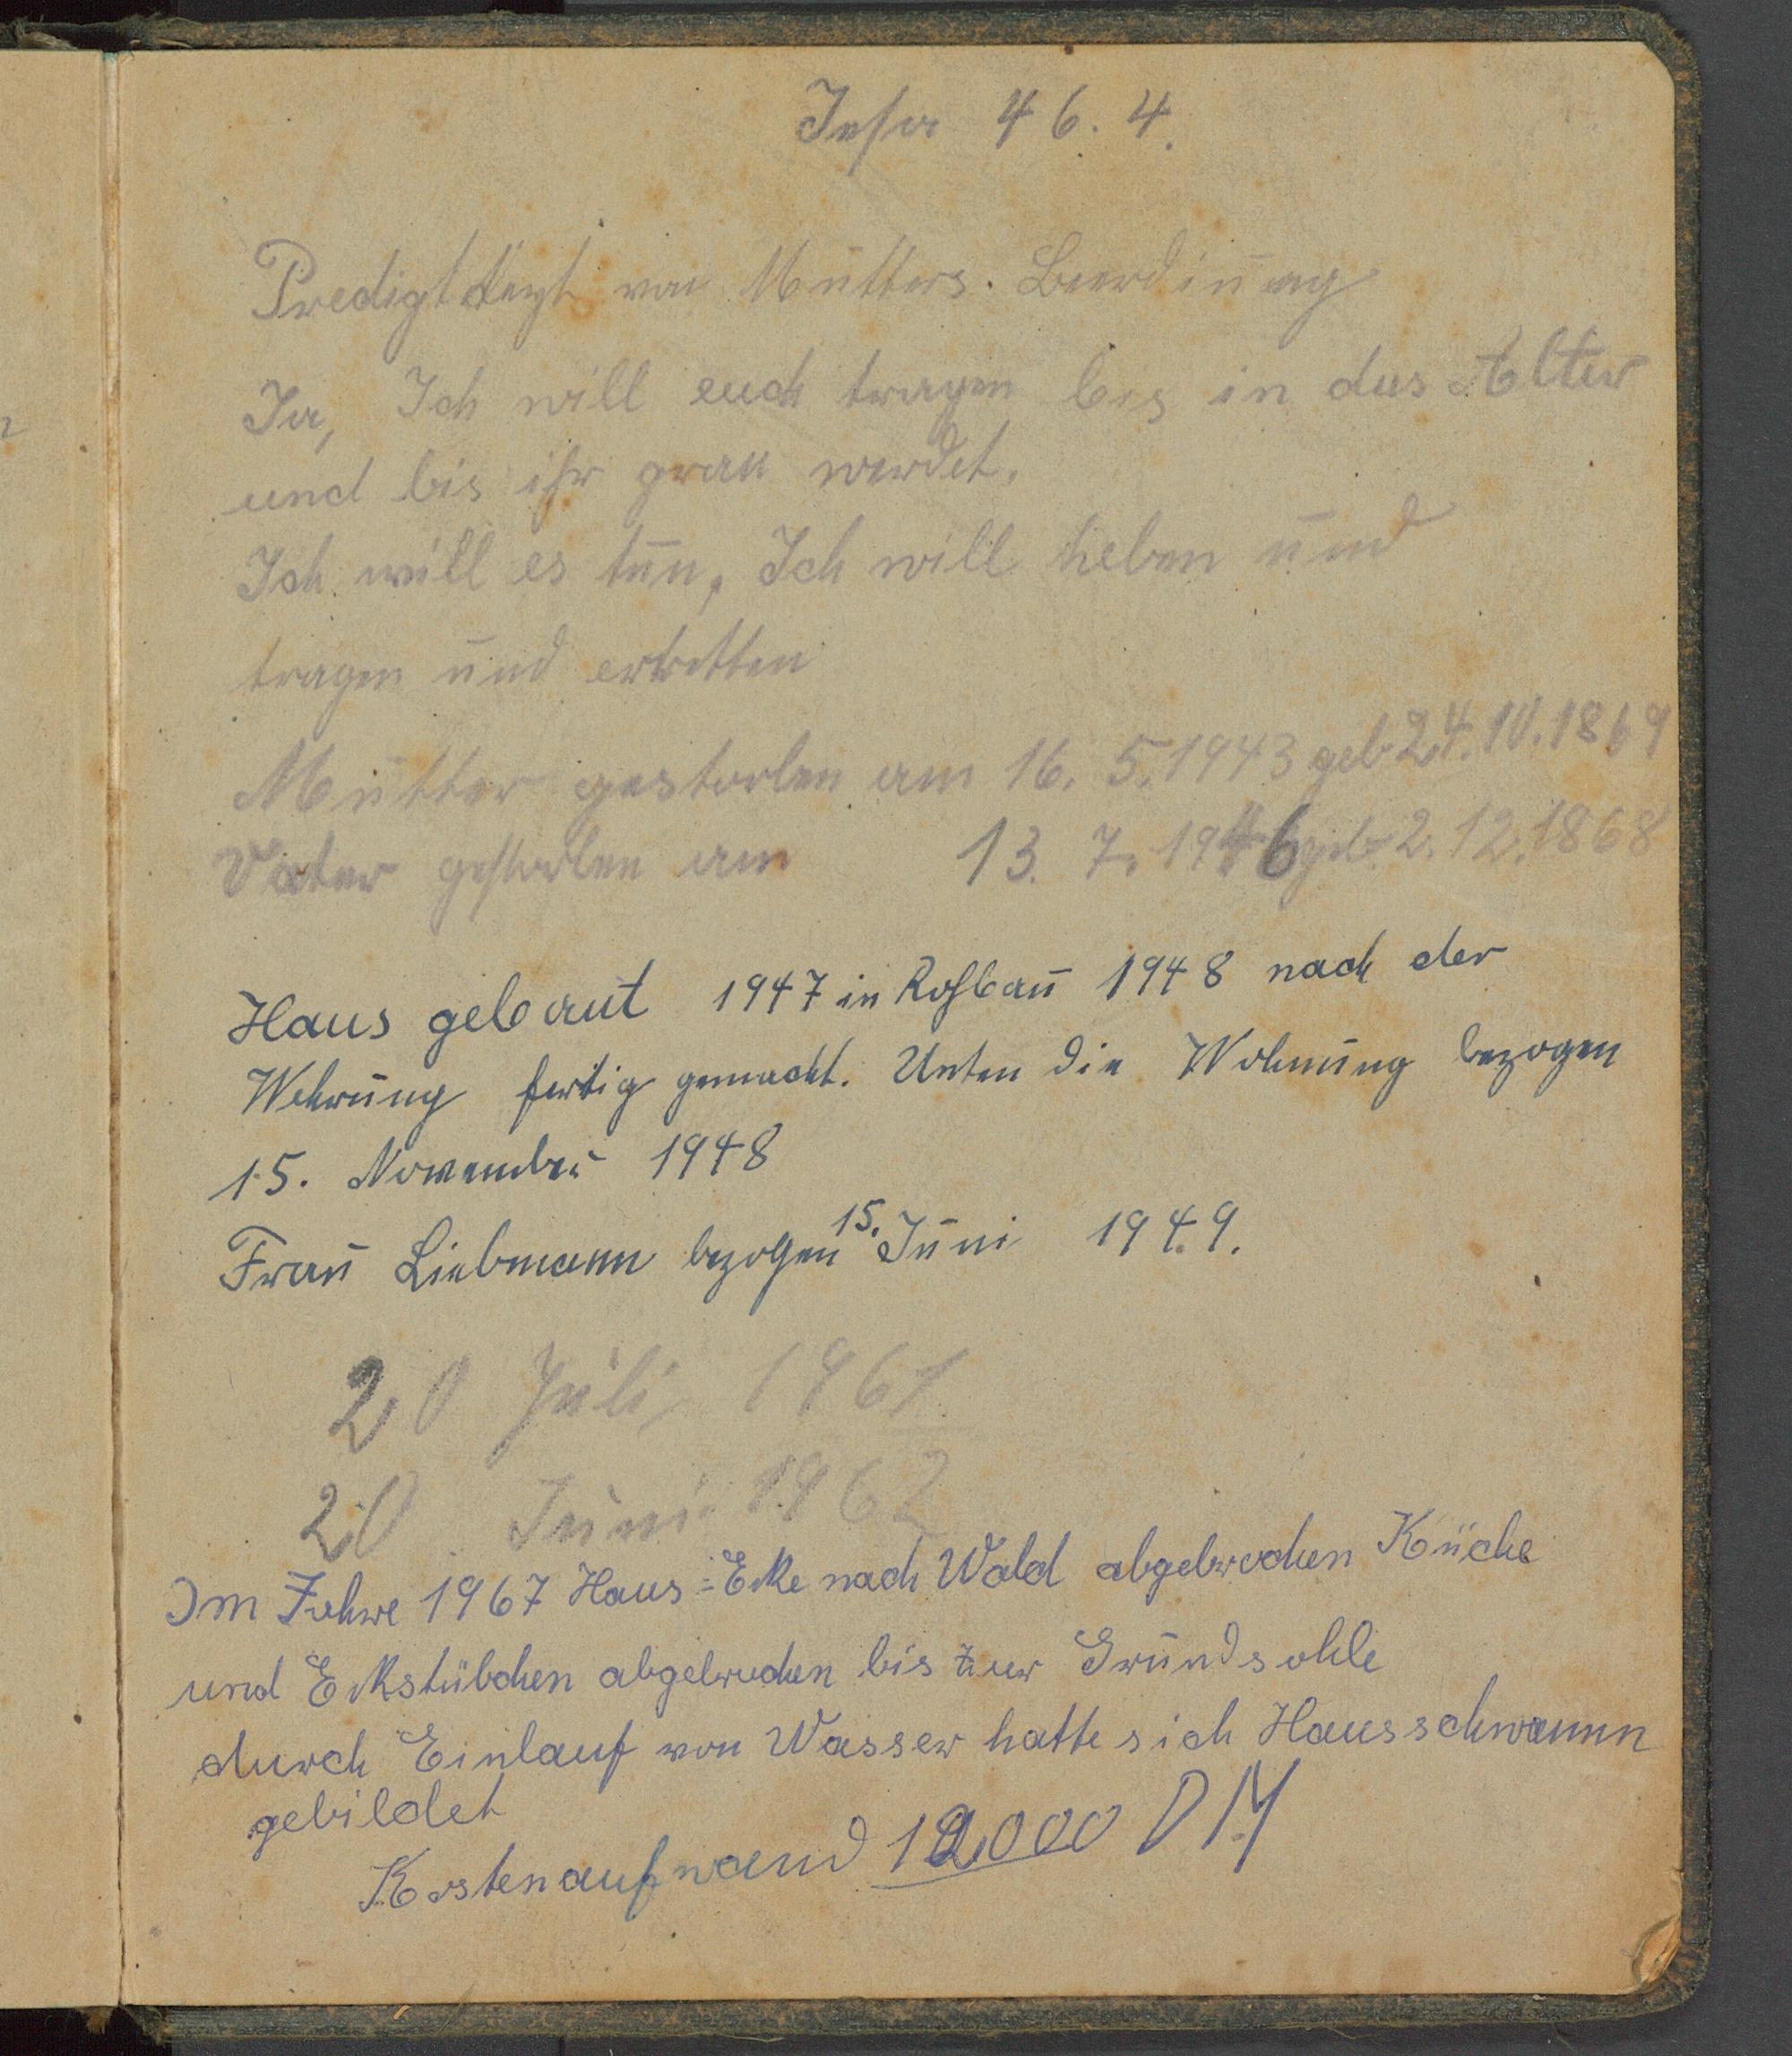 Jesa 46.4.
Predigttext von Mutters. Beerdinung
Ja, Ich will euch tragen bis in das Alter
und bis ihr grau werdet.
Ich will es tun, Ich will heben und
tragen und erretten
Mutter gestorben am 16. 5. 1943 geb 24. 10. 1869
Vater gestorben am 13. 7. 1946 geb 2. 12. 1868
Haus gebaut 1947 in Rohbau 1948 nach der
Wehrung fertig gemacht. Unten die Wohnung bezogen
15. November 1948
Frau Liebmann bezogen 15. Juni 1949.
20 Juli 1961
20 Juni 1962
Im Jahre 1967 Haus=Ecke nach Wald abgebrochen Küche
und Eckstübchen abgebrochen bis zur Grundsohle
durch Einlauf von Wasser hatte sich Hausschwamm
gebildet
Kostenaufwand 12000 DM